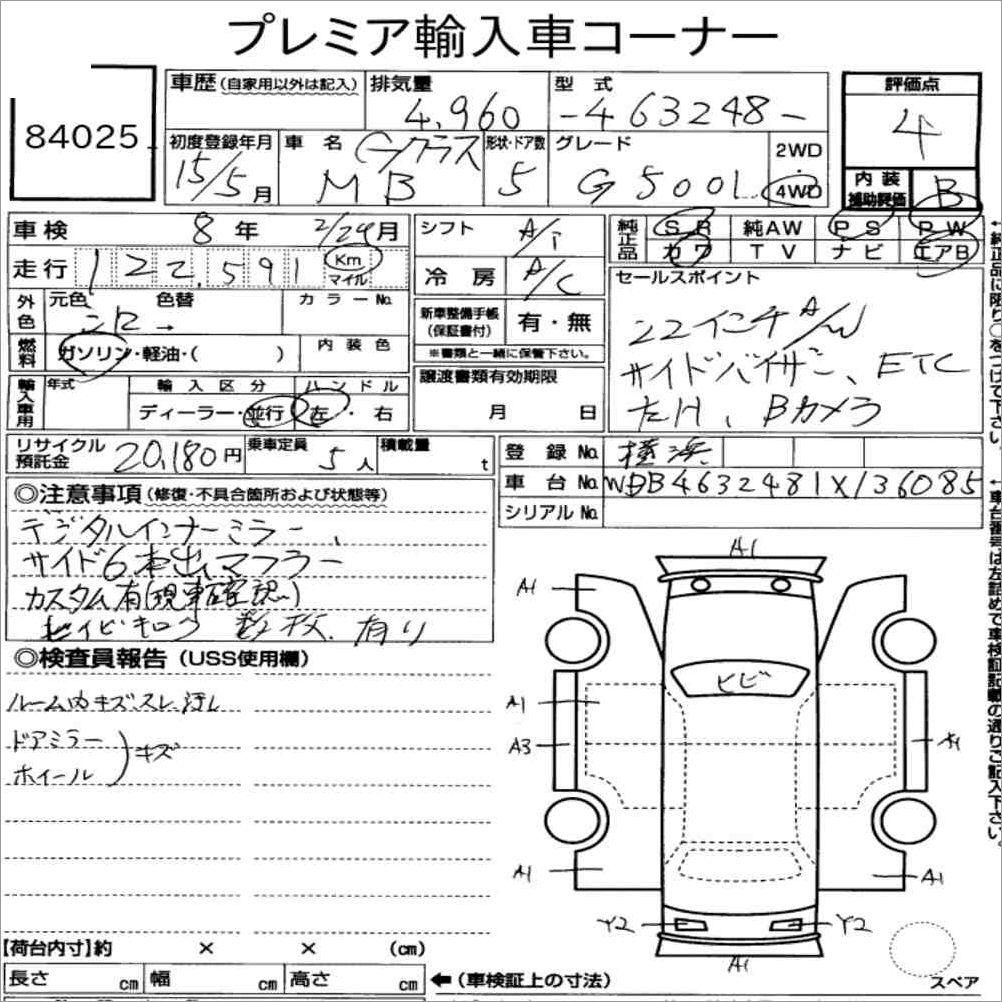 プレミア輸入車コーナー
84025
車歴 (自家用以外は記入)
排気量 4,960
型式 -463248-
評価点 4
初度登録年月 15/5月
車名 Gクラス MB
形状・ドア数 5
グレード G500L
2WD
4WD
内装補助評価 B
車検 8年 2/29月
走行 122,591 Km マイル
シフト A/T
冷房 A/C
純正品 SR 純AW PS PW
カワ TV ナビ エアB
セールスポイント
22インチA/W
サイドバイザー、ETC
左H、Bカメラ
外色 元色 色替 カラーNo.
シロ→
燃料 ガソリン・軽油・( )
内装色
新車整備手帳 (保証書付) 有・無
※書類と一緒に保管下さい。
輸入車用 年式 輸入区分 ハンドル
ディーラー・並行 左・右
譲渡書類有効期限
月 日
リサイクル預託金 20,180円
乗車定員 5人
積載量 t
登録No. 横浜
車台No. WDB4632481X136085
シリアルNo.
◎注意事項 (修復・不具合箇所および状態等)
デジタルインナーミラー、
サイド6本出マフラー
カスタム有(現車確認)
数枚有り
◎検査員報告 (USS使用欄)
ルーム内キズスレ汚レ
ドアミラー
ホイール
キズ
A1
A1
ヒビ
A1
A3
A1
A1
A1
Y2
Y2
A1
スペア
【荷台内寸】約 × × (cm)
長さ cm 幅 cm 高さ cm
←(車検証上の寸法)
↑純正品に限り○をつけて下さい。
↑車台番号は左詰めで車検証記載の通りご記入下さい。